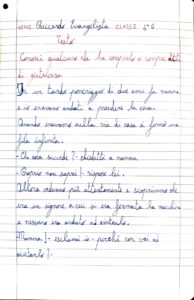 NOME Riccardo Evangelista CLASSE 5°B
Testo
Conosci qualcuno che ha compiuto o compie atti
di gentilezza
In un tardo pomeriggio di due anni fa mamma
e io eravamo andati a prendere la cena.
Quando eravamo sulla via di casa si formò una
fila infinita.
- Che cosa succede? - chiedetti a mamma.
- Proprio non saprei! - rispose lei.
Allora andammo più attentamente e scoprimmo che
era un signore a cui si era fermata la macchina
e nessuno era andato ad aiutarlo.
- Mamma! - esclamai io - perché non vai ad
aiutarlo? -